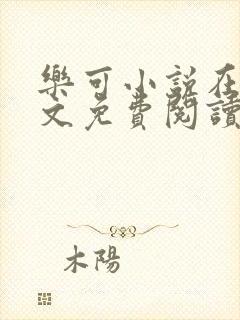 樂可小說在
文免費閱讀
木陽